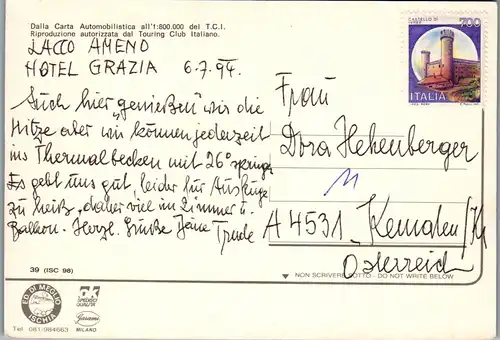 Dalla Carta Automobilistica all'1:800.000 del T.C.I.
Riproduzione autorizzata dal Touring Club Italiano.
LACCO AMENO
HOTEL GRAZIA 6.7.94.
Auch hier "genießen" wir die
Hitze aber wir können jederzeit
ins Thermalbecken mit 26° springen
Es geht uns gut, leider für Ausflüge
zu heiß, daher viel im Zimmer u.
Balkon. Herzl. Grüße Deine Trude
Frau
Dora Hehenberger
A 4531 Kematen/Kr
Österreich
CASTELLO DI
700
ITALIA
39 (ISC 98)
NON SCRIVERE SOTTO - DO NOT WRITE BELOW
ED. DI MEGLIO
ISCHIA
Tel 081/984663
MILANO